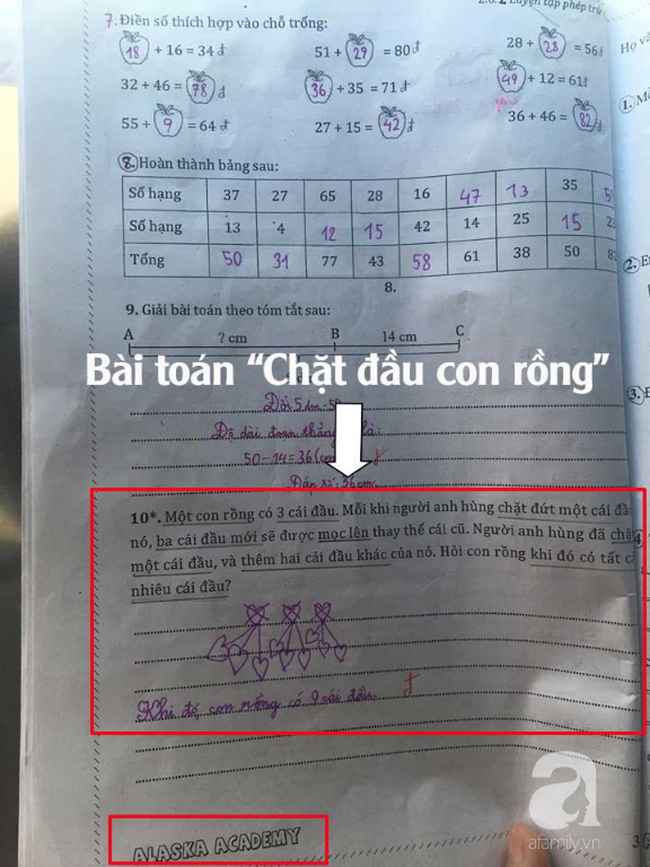 2.0.2 Luyện tập phép trừ
7. Điền số thích hợp vào chỗ trống:
18 + 16 = 34 đ
51 + 29 = 80 đ
28 + 28 = 56 đ
32 + 46 = 78 đ
36 + 35 = 71 đ
49 + 12 = 61 đ
55 + 9 = 64 đ
27 + 15 = 42 đ
36 + 46 = 82 đ
8. Hoàn thành bảng sau:
Số hạng 37 27 65 28 16 47 13 35
Số hạng 13 4 12 15 42 14 25 15
Tổng 50 31 77 43 58 61 38 50
8.
9. Giải bài toán theo tóm tắt sau:
A ? cm B 14 cm C
Bài toán “Chặt đầu con rồng”
Đổi 5 dm = 50
Độ dài đoạn thẳng là:
50 - 14 = 36 (cm
Đáp số: 36 cm
10*. Một con rồng có 3 cái đầu. Mỗi khi người anh hùng chặt đứt một cái
nó, ba cái đầu mới sẽ được mọc lên thay thế cái cũ. Người anh hùng đã
một cái đầu, và thêm hai cái đầu khác của nó. Hỏi con rồng khi đó có tất
nhiêu cái đầu?
Khi đó, con rồng có 9 cái đầu.
đ
ALASKA ACADEMY
Họ
1.
2.
3.
a
afamily.vn
3